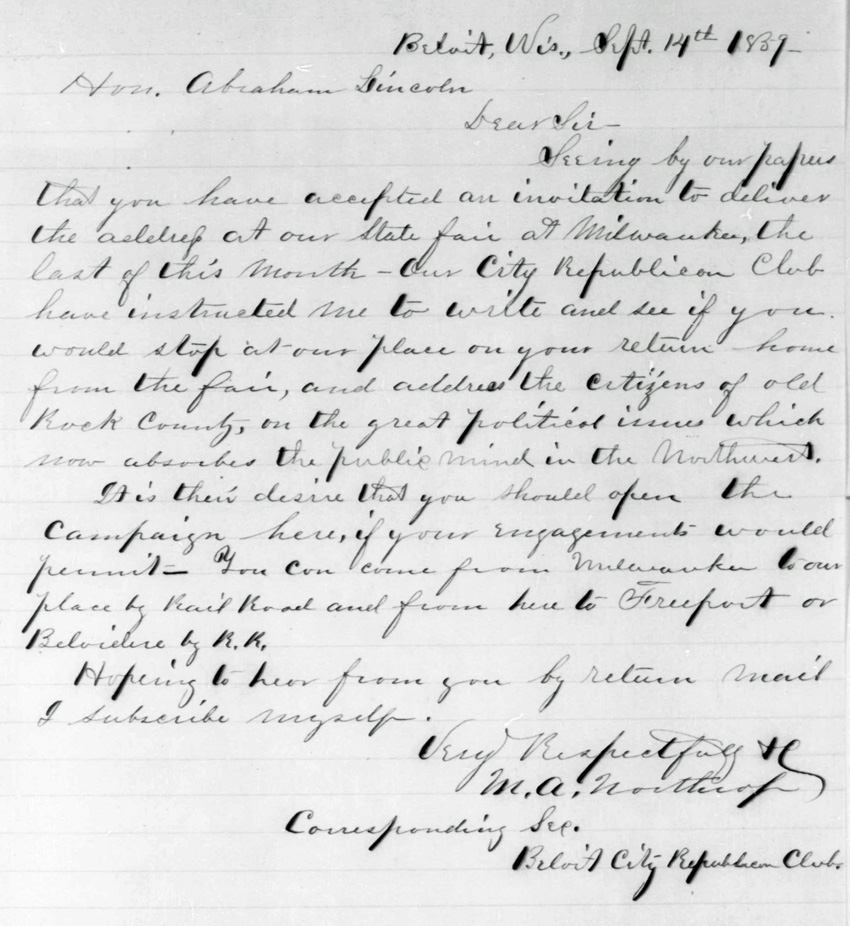 Beloit, Wis., Sept. 14th 1859-
Hon. Abraham Lincoln
Dear Sir-
Seeing by our papers
that you have accepted an invitation to deliver
the address at our State fair at Milwaukee, the
last of this month - Our City Republican Club
have instructed me to write and see if you
would stop at our place on your return home
from the fair, and address the citizens of old
Rock County, on the great political issues which
now absorbes the public mind in the Northwest.
It is their desire that you should open the
Campaign here, if your engagements would
permit- You can come from Milwaukee to our
place by Rail Road and from here to Freeport or
Belvidere by R.R.
Hoping to hear from you by return mail
I subscribe myself.
Very Respectfully &c
M. A. Northrop
Corresponding Sec.
Beloit City Republican Club.